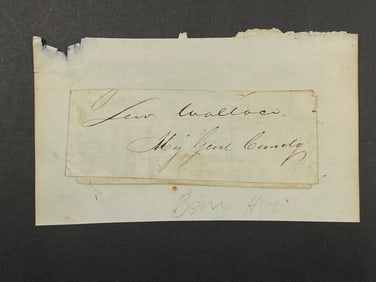 Lew. Wallace,
Maj Genl Comdg
Ben Hur